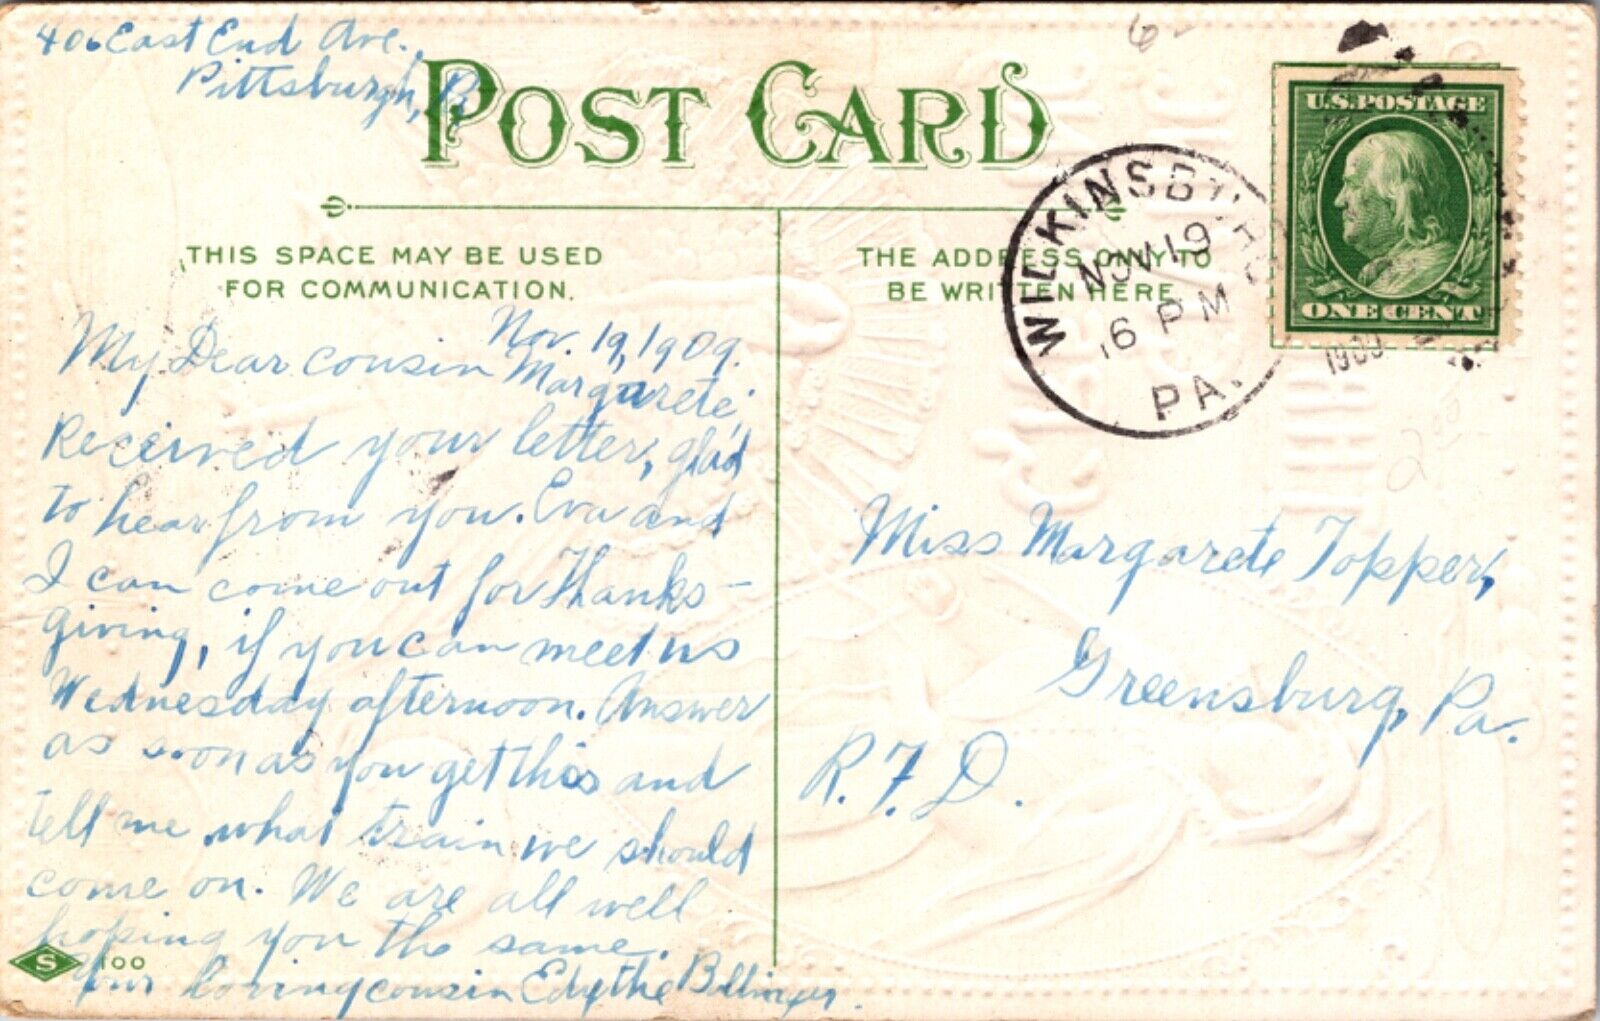 406 East End Ave.
Pittsburgh, Pa
POST CARD
THIS SPACE MAY BE USED
FOR COMMUNICATION.
THE ADDRESS ONLY TO
BE WRITTEN HERE
U.S. POSTAGE
ONE CENT
WILKINSBURG
NOV 19
6 PM
PA.
1909
Nov. 19, 1909.
My Dear Cousin Margarete,
Received your letter, glad
to hear from you. Eva and
I can come out for Thanks-
giving, if you can meet us
Wednesday afternoon. Answer
as soon as you get this and
tell me what train we should
come on. We are all well
hoping you the same.
Your loving cousin Edythe Bollinger.
Miss Margarete Topper,
Greensburg, Pa.
R.F.D.
S 100